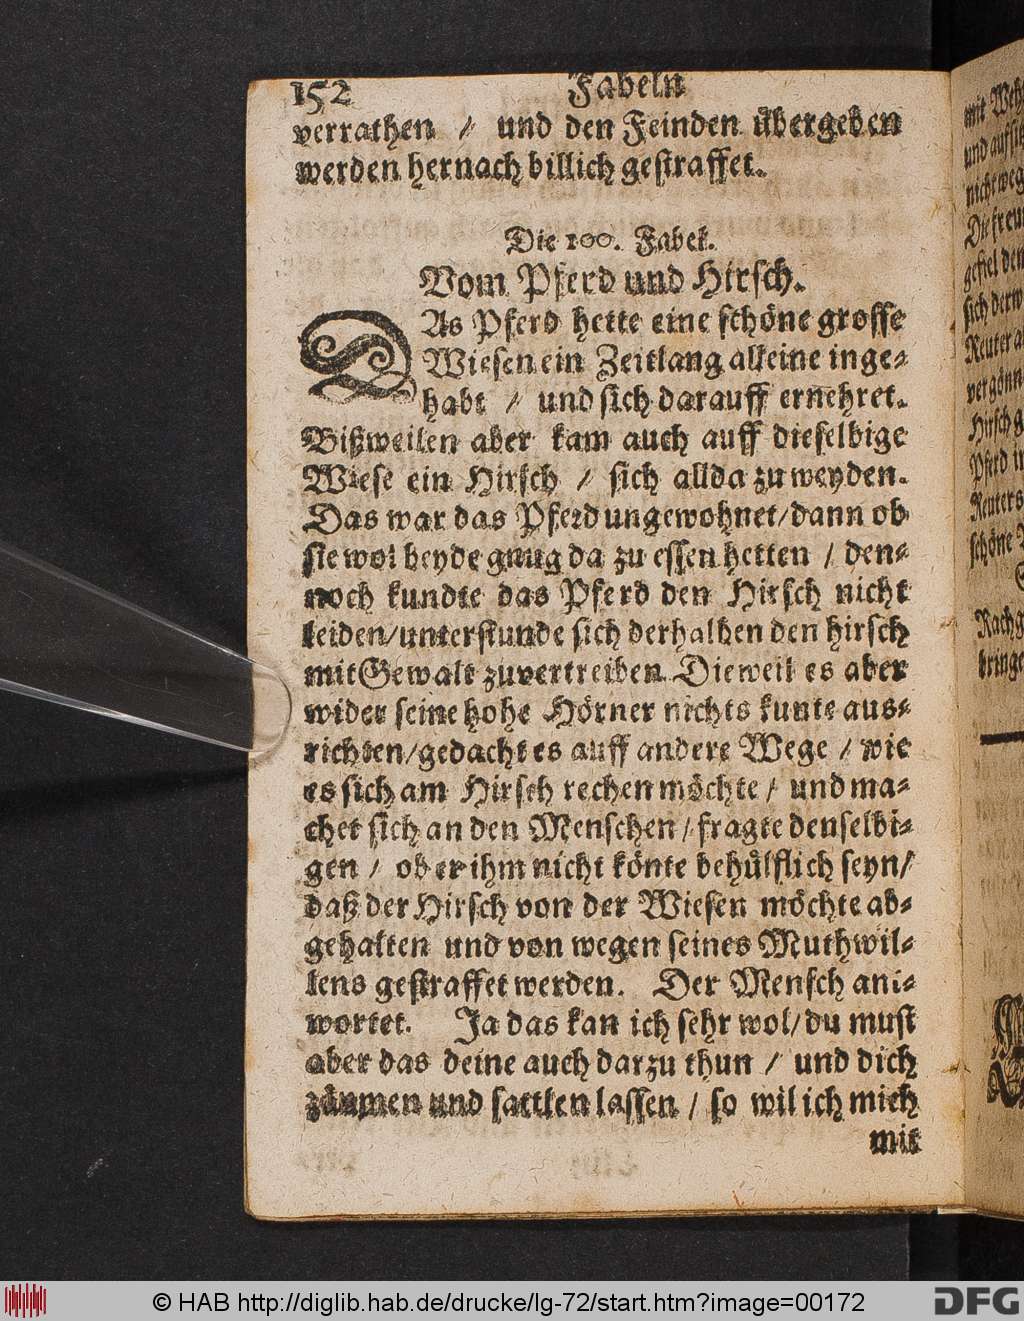 152 Fabeln
verrathen / und den Feinden übergeben
werden hernach billich gestraffet.
Die 100. Fabel.
Vom Pferd und Hirsch.
DAs Pferd hette eine schöne grosse
Wiesen ein Zeitlang alleine inge-
habt / und sich darauff ernehret.
Bißweilen aber kam auch auff dieselbige
Wiese ein Hirsch / sich allda zu weyden.
Das war das Pferd ungewohnet/dann ob
sie wol beyde gnug da zu essen hetten / den-
noch kundte das Pferd den Hirsch nicht
leiden/unterstunde sich derhalben den hirsch
mit Gewalt zuvertreiben. Dieweil es aber
wider seine hohe Hörner nichts kunte aus-
richten/gedacht es auff andere Wege / wie
es sich am Hirsch rechen möchte / und ma-
chet sich an den Menschen / fragte denselbi-
gen / ob er ihm nicht könte behülflich seyn/
daß der Hirsch von der Wiesen möchte ab-
gehalten und von wegen seines Muthwil-
lens gestraffet werden. Der Mensch ant-
wortet. Ja das kan ich sehr wol/du must
aber das deine auch darzu thun / und dich
zäumen und sattlen lassen / so wil ich mich
mit
mit
und
nicht weg
gefiel den
Reuter
Hirsch
Pferd
Reuters
schöne
Nach
bringe
© HAB http://diglib.hab.de/drucke/lg-72/start.htm?image=00172
DFG